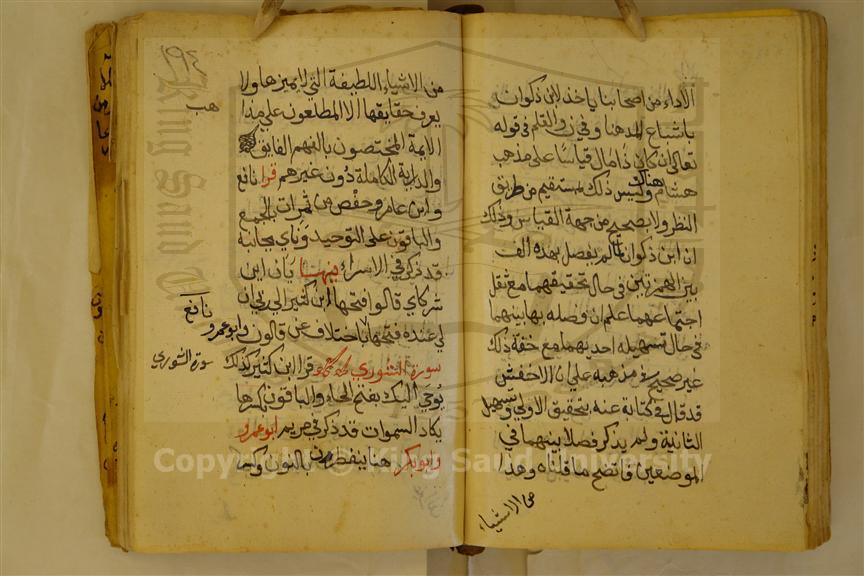 الاداء من اصحابنا ياخذ لابن ذكوان
باشباع المد هنا وفي ن والقلم في قوله
تعالى أن كان ذا مال قياسًا على مذهب
هشام هناك وليس ذلك بمستقيم من طريق
النظر ولا بصحيح من جهة القياس وذلك
ان ابن ذكوان لما لم يفصل بهذه الالف
بين الهمزتين في حال تحقيقهما مع ثقل
اجتماعهما علم ان وصله بها بينهما
في حال تسهيله احديهما مع خفة ذلك
غير صحيح في مذهبه على ان الاخفش
قد قال في كتابة عنه بتحقيق الاولى وتسهيل
الثانية ولم يذكر فصلا بينهما في
الموضعين فاتضح ما قلناه وهذا
من الاشياء
١٩٤
من الاشياء اللطيفة التي لا يميزها ولا
يعرف حقايقها الا المطلعون على مذا
هب
الايمة المختصون بالفهم الفايق
والدراية الكاملة دُون غيرهم قرا نافع
وابن عامر وحفص من ثمرات بالجمع
والباقون على التوحيد ونأي بجانبه
قد ذكر في الاسراء فيها يآن اين
شركاي قالوا فتحها ابن كثير الى ربي ان
لي عنده فتحها باختلاف عن قالون وابو عمرو
نافع
سورة الشورى قرا ابن كثير كذلك
سورة الشوري
يُوحَى اليك بفتح الحاء والباقون بكسرها
يكاد السموات قد ذكر في مريم ابو عمرو
وابو بكر هنا ينفطرن بالنون وكسر
Copyright © King Saud University
King Saud U